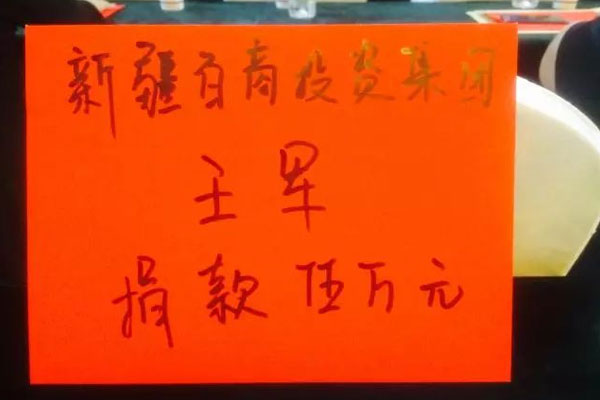 新疆百商投资集团
王军
捐款伍万元